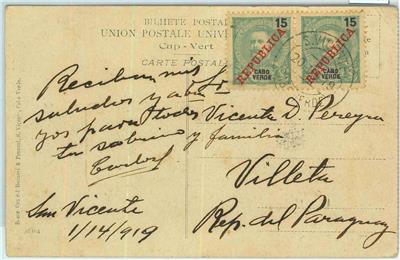 BILHETE POSTAL
UNION POSTALE UNIV
Cap-Vert
CARTE POSTALE
15
15
REPUBLICA
REPUBLICA
CABO
VERDE
CABO
VERDE
S. V
20
Reciban mis
saludos y abra
zos para todos
tu sobrino
Carlos
San Vicente
1/14/919
Sr
Vicente D. Pereyra
y familia
Villeta
Rep. del Paraguay